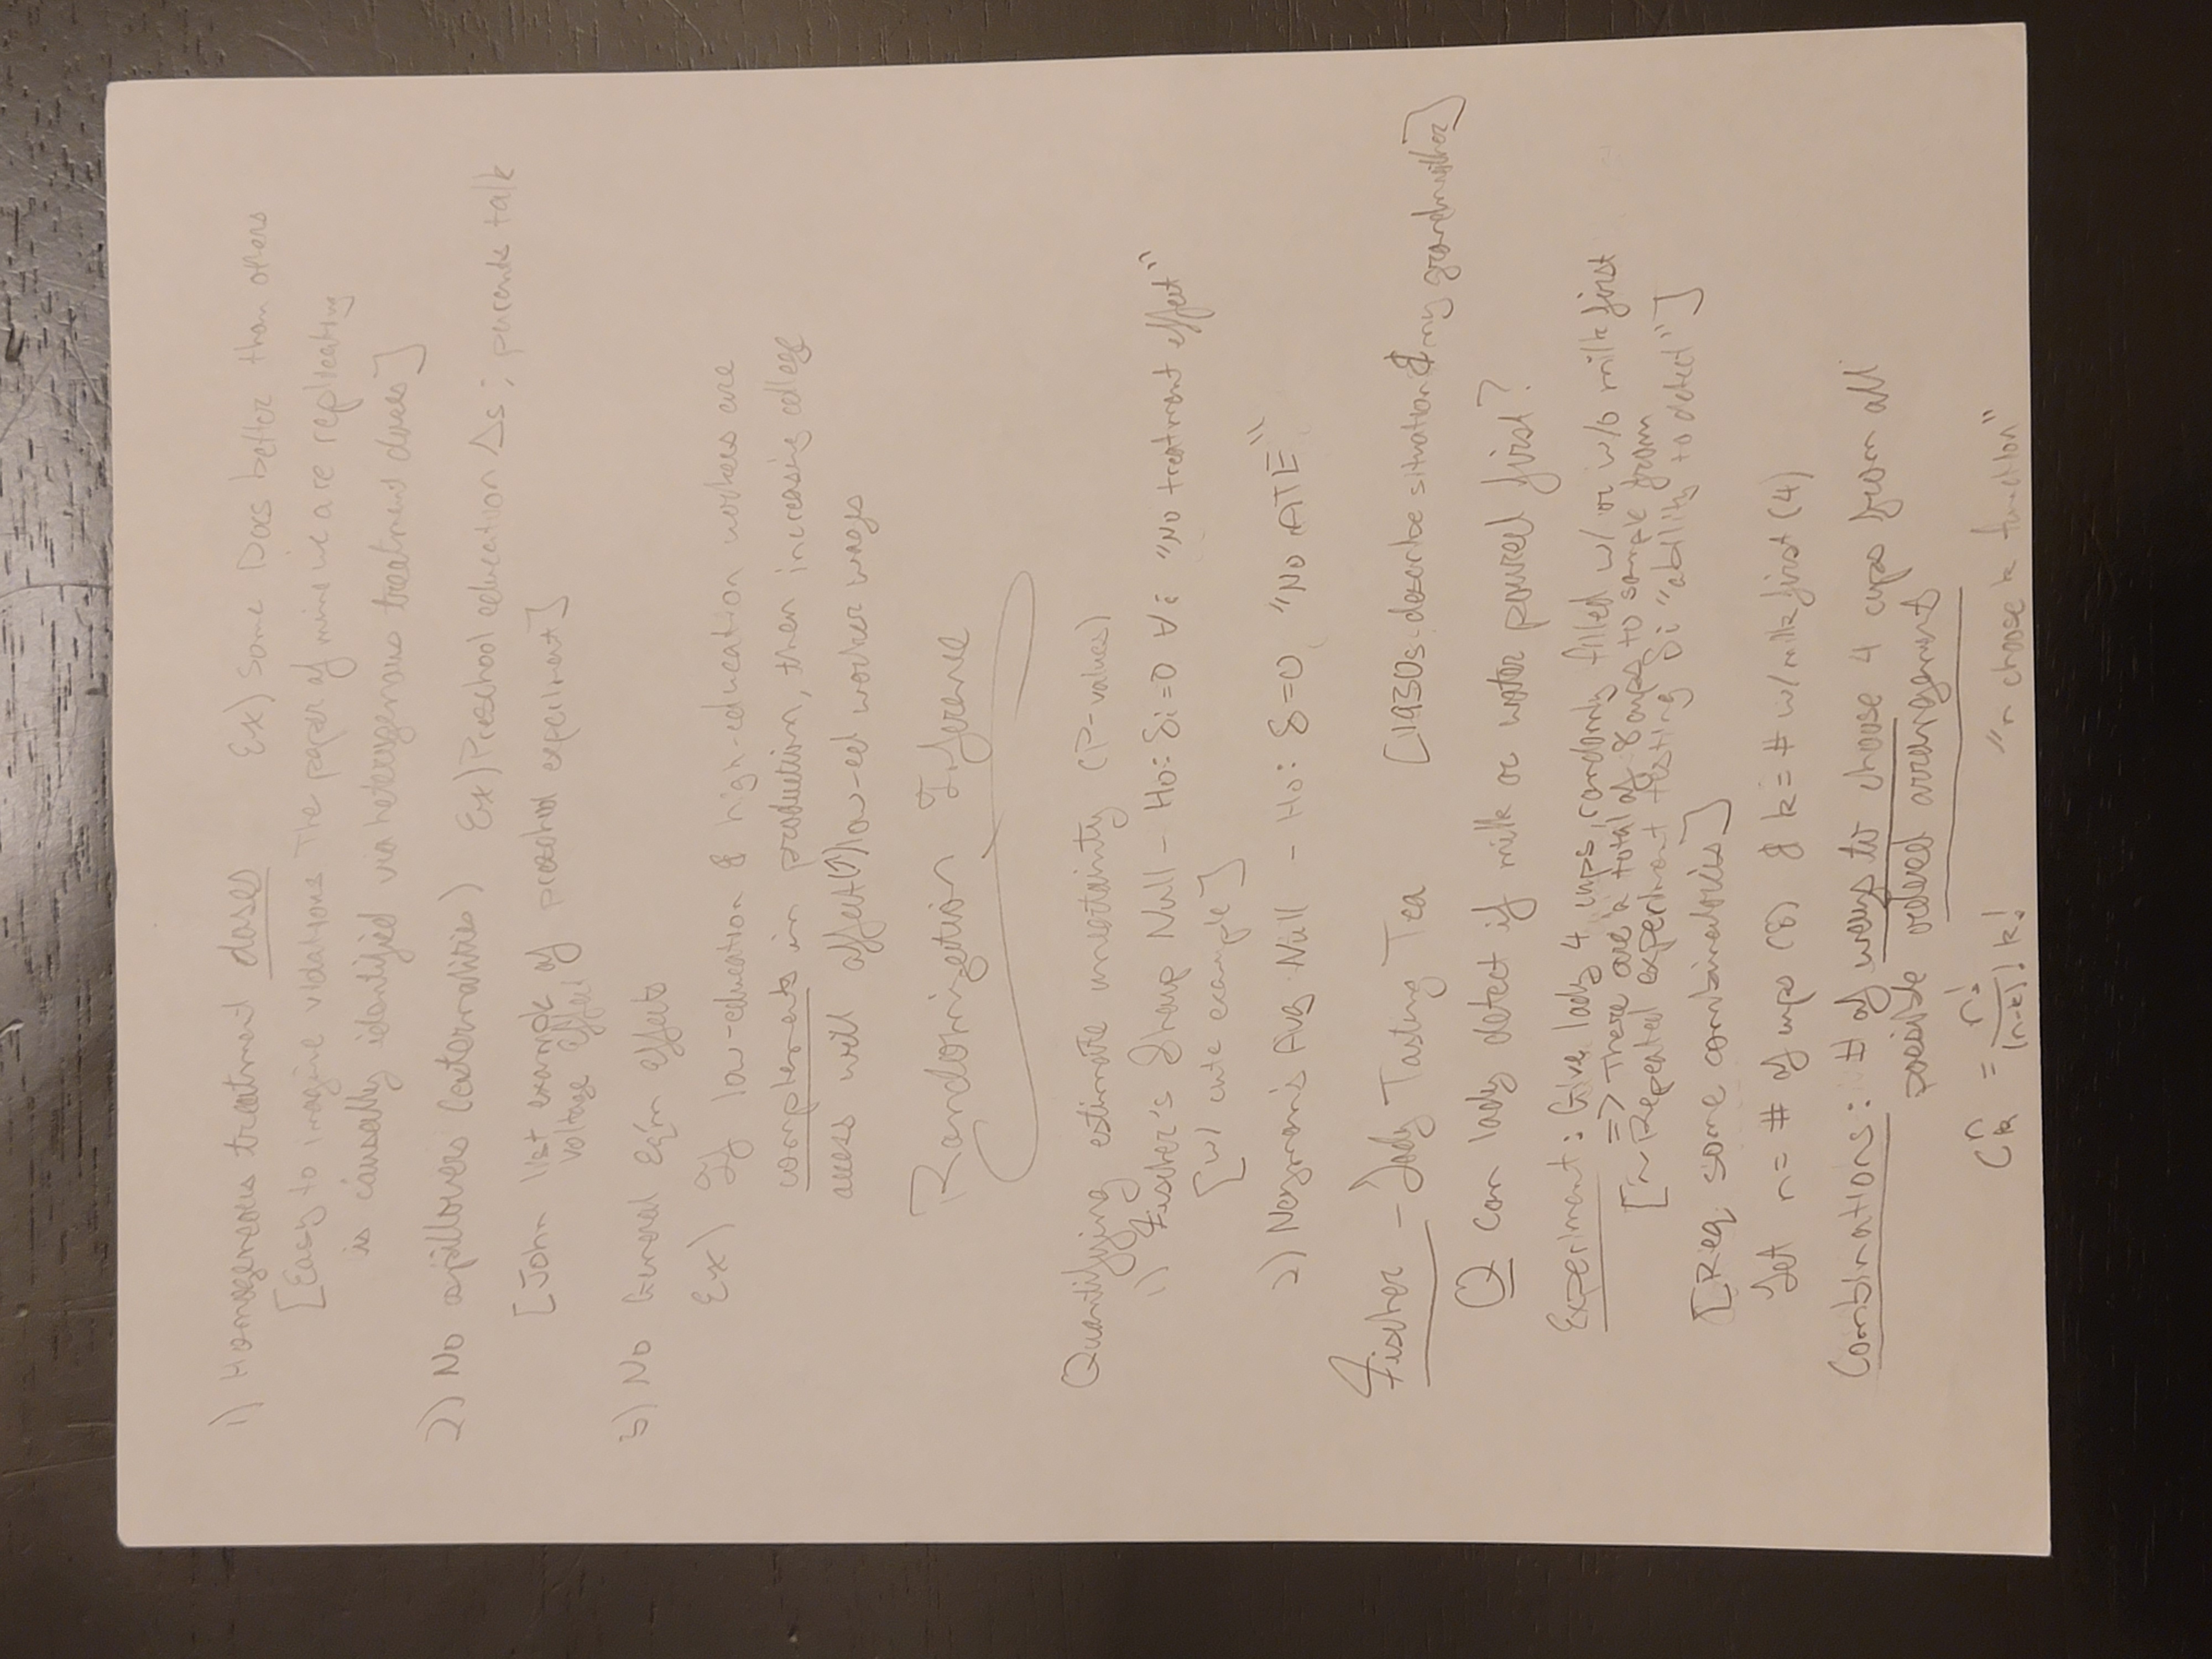 1) Homogeneous treatment doses Ex) Some Docs better than others
[Easy to imagine violations The paper of mine we are replicating
is causally identified via heterogenous treatment doses]
2) No spillovers (externalities) Ex) Preschool education Δs; parents talk
[John list example of preschool experiment]
voltage effect
3) No General Eq'm effects
Ex) If low-education & high-education workers are
complements in production, then increasing college
access will affect(↑) low-ed worker wages
Randomization Inference
Quantifying estimate uncertainty (P-values)
1) Fischer's Sharp Null - Ho: δi=0 ∀i "No treatment effect"
[w/ cute example]
2) Neyman's Avg Null - Ho: δ=0 "No ATE"
Fischer - Lady Tasting Tea [1930s-describe situation & my grandmother]
Q Can lady detect if milk or water poured first?
Experiment: Give lady 4 cups, randomly filled w/ or w/o milk first
=> There are a total of 8 cups to sample from
[~Repeated experiment testing δi "ability to detect"]
[Req some combinatorics]
Let n= # of cups (8) & k= # w/ milk first (4)
Combinations: # of ways to choose 4 cups from all
possible ordered arrangements
C^n_k = n!/((n-k)! k!) "n choose k function"